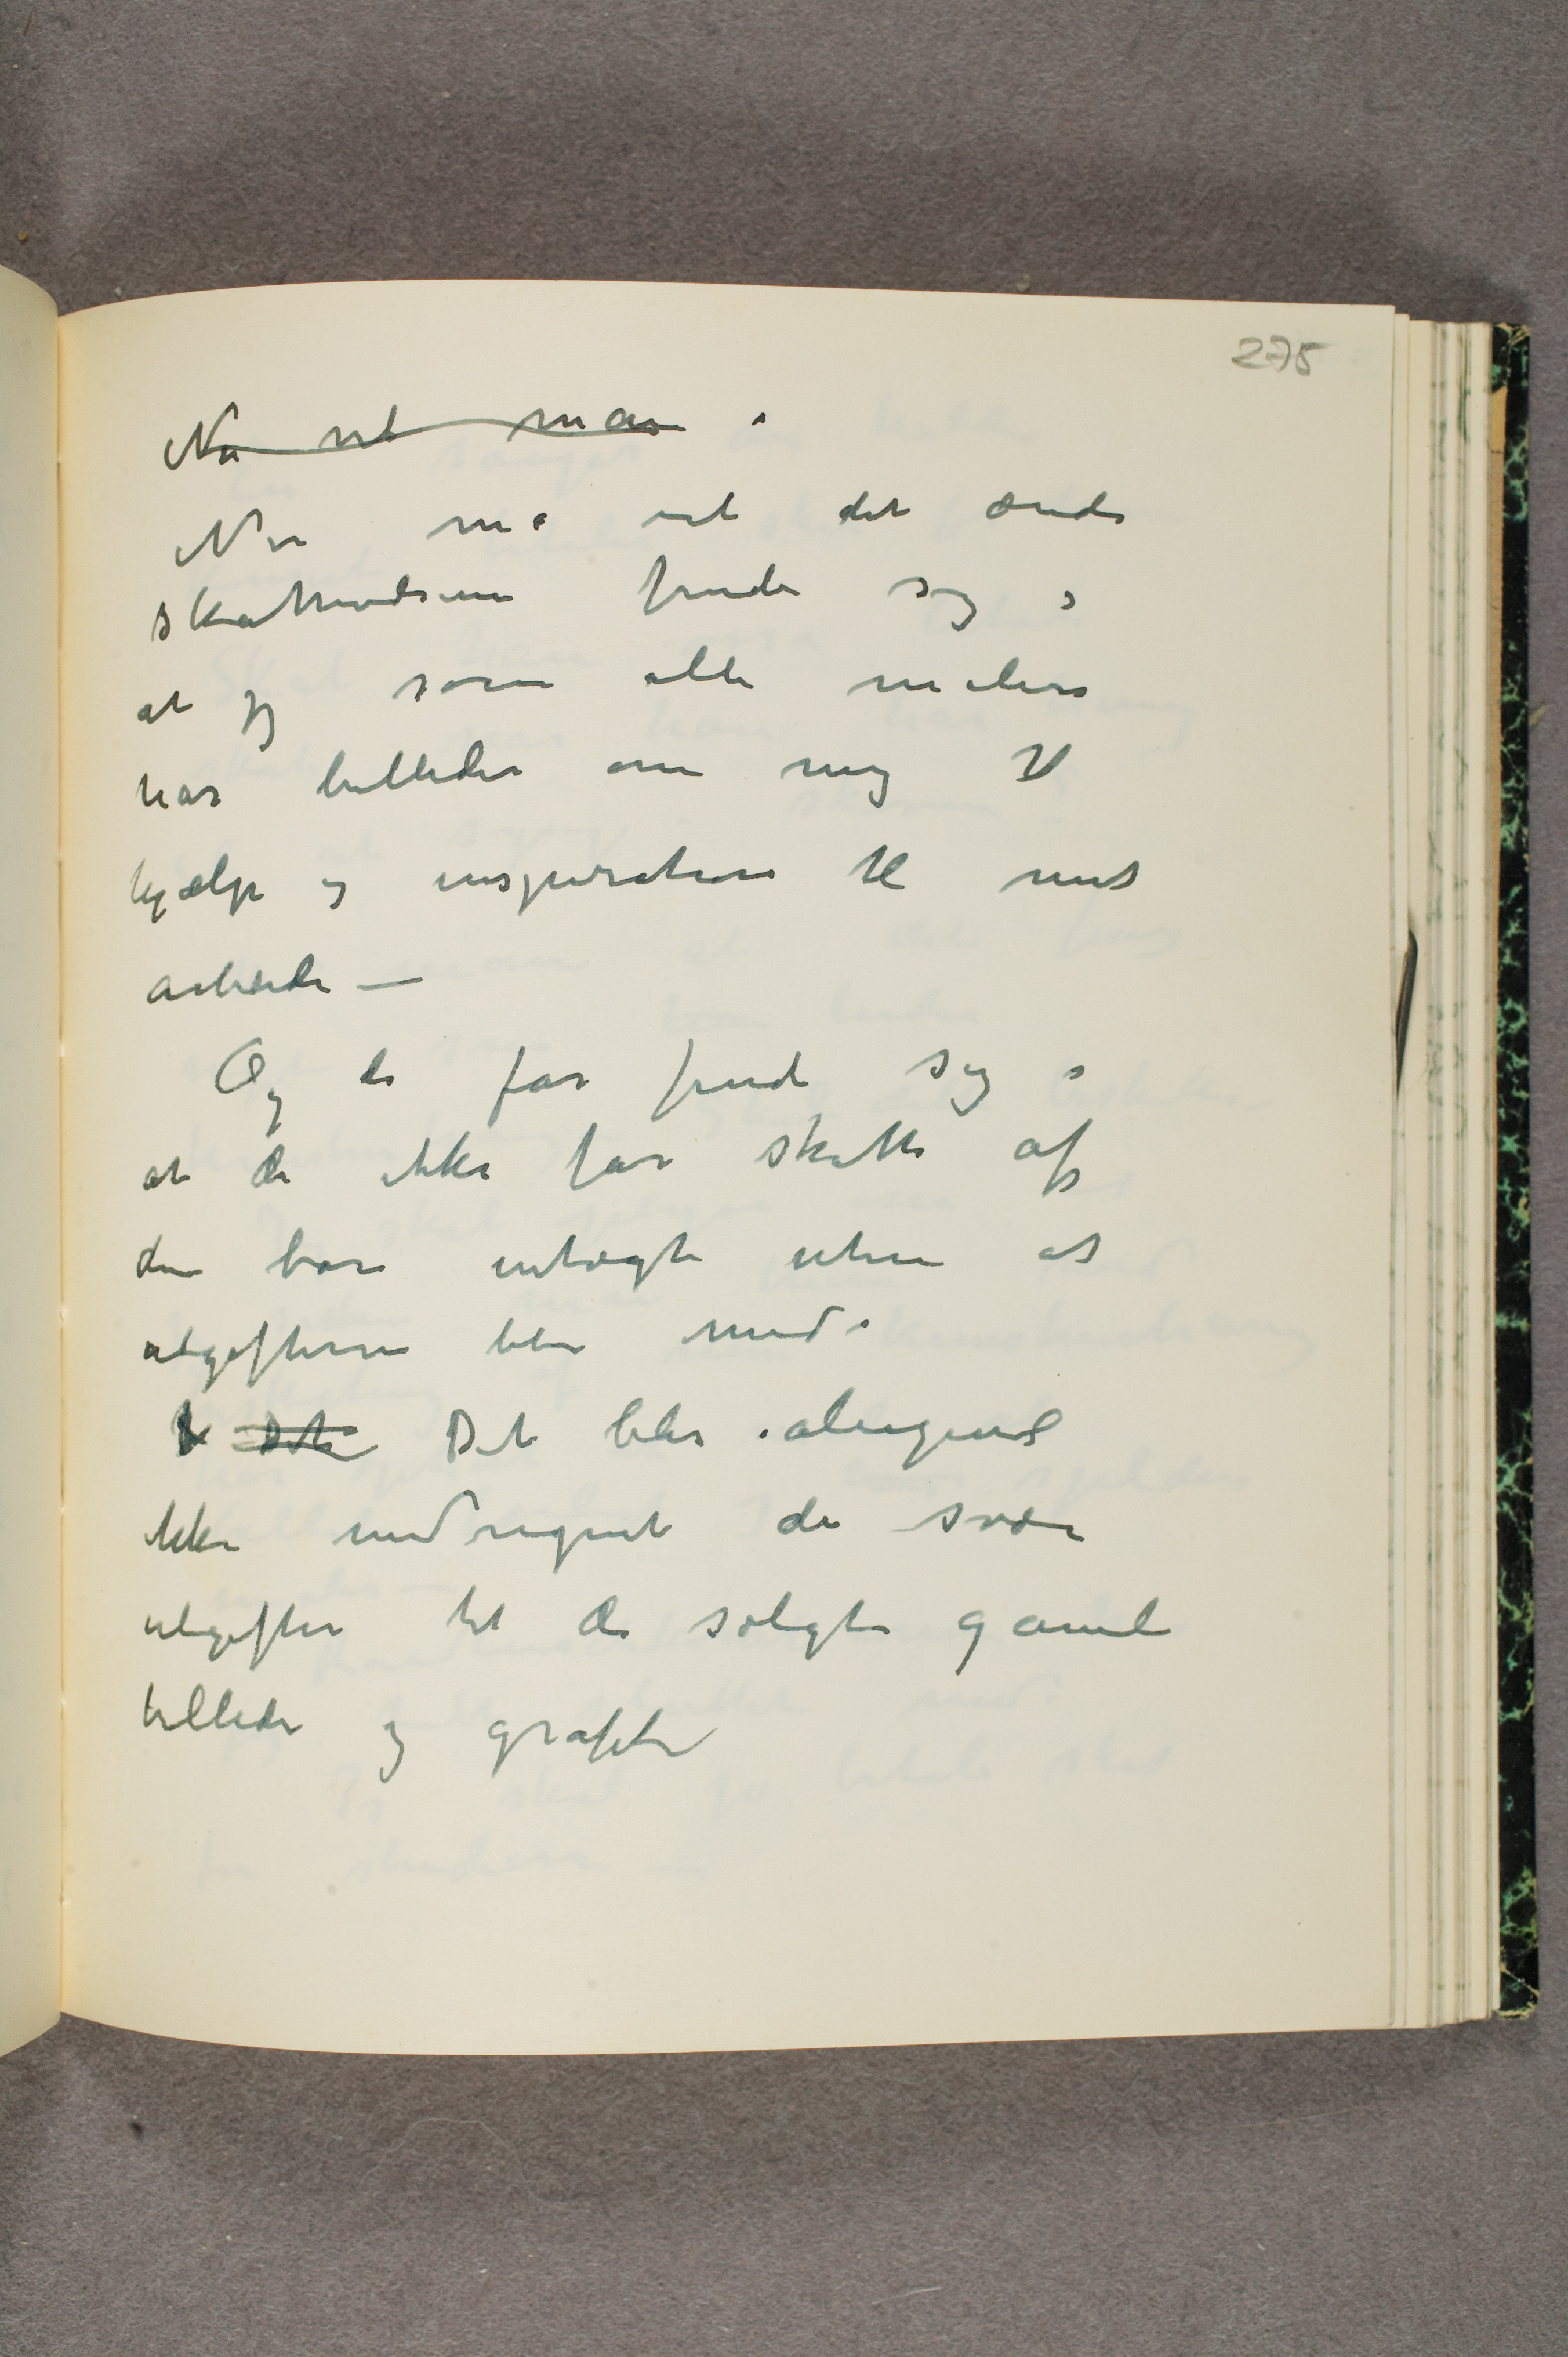 275
Nu vil man i
Nu må vel det ænde
skattevæsenen finde sig i
at jeg som alle malere
har billeder om mig til
hjælp og inspiration til mit
arbeide —
Og de får finde sig i
at de ikke får skatte af
den bare indtægte uten at
utgifterne blir med.
Det Det blir i almgindl
ikke medregnet de svære
utgifter til de solgte gamle
billeder og grafikk